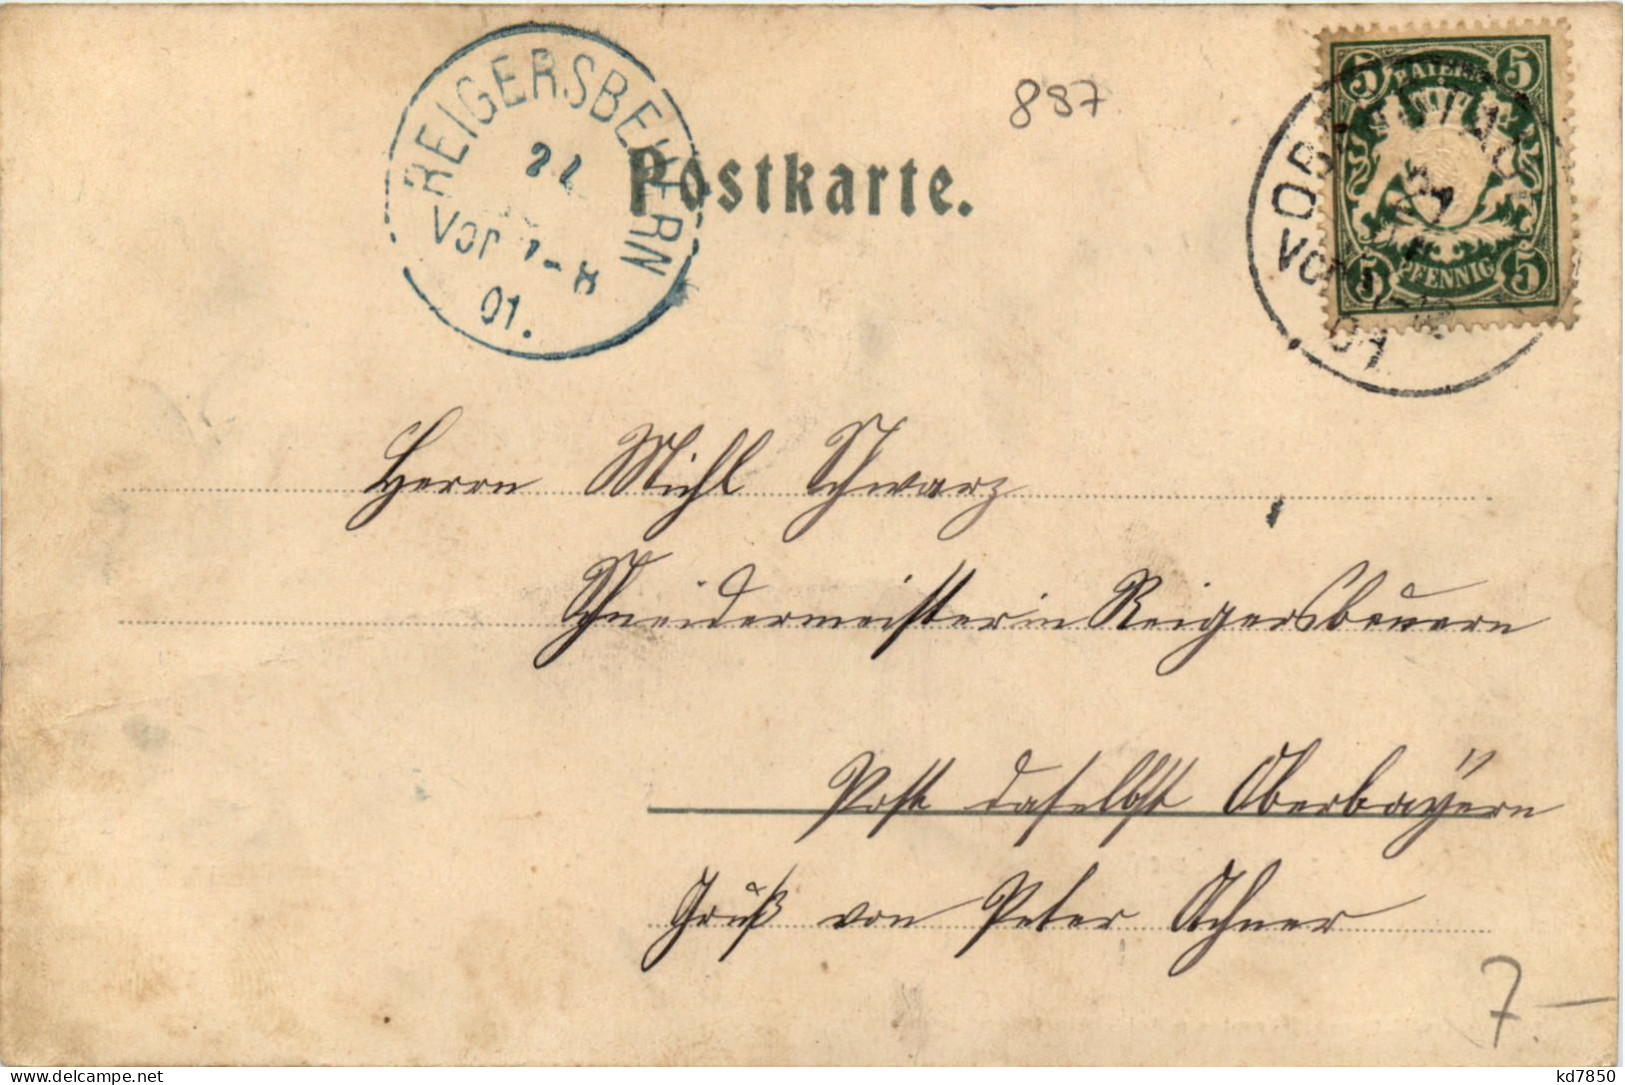 REIGERSBEUERN
Vor 7-8
01.
Postkarte.
887
5 BAYERN 5
5 PFENNIG 5
Vor 11-12
01
Herrn Michl Schwarz
Schneidermeister in Reigersbeuern
Post daselbst Oberbayern
Gruß von Peter Achner
7.-
www.delcampe.net
kd7850